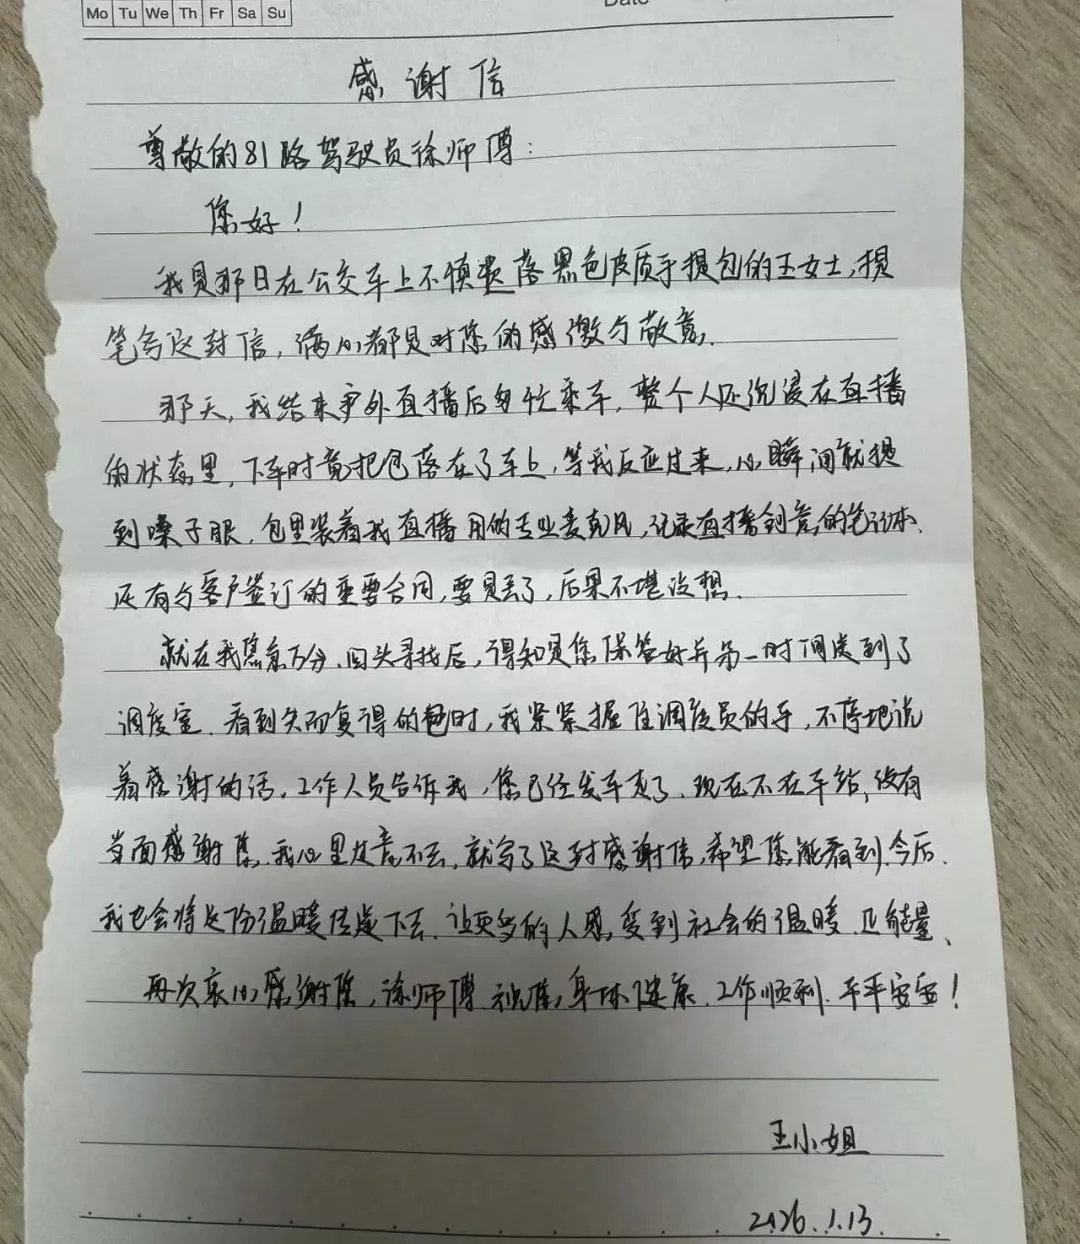 Mo Tu We Th Fr Sa Su
Date
感谢信
尊敬的81路驾驶员徐师傅：
您好！
我是那日在公交车上不慎遗落黑色皮质手提包的王女士，提
笔写这封信，满心都是对您的感激与敬意.
那天，我结束户外直播后匆忙乘车，整个人还沉浸在直播
的状态里，下车时竟把包落在了车上，等我反应过来，心瞬间就提
到嗓子眼.包里装着我直播用的专业麦克风，记录直播创意的笔记本、
还有与客户签订的重要合同，要是丢了，后果不堪设想.
就在我焦急万分，回头寻找后，得知是您保管好并第一时间送到了
调度室.看到失而复得的包时，我紧紧握住调度员的手，不停地说
着感谢的话。工作人员告诉我，您已经发车走了.现在不在车站，没有
当面感谢您.我心里过意不去，就写了这封感谢信，希望您能看到.今后.
我也会将这份温暖传递下去.让更多的人感受到社会的温暖.正能量、
再次衷心感谢您，徐师傅.祝您身体健康.工作顺利.平平安安！
王小姐
2026.1.13.